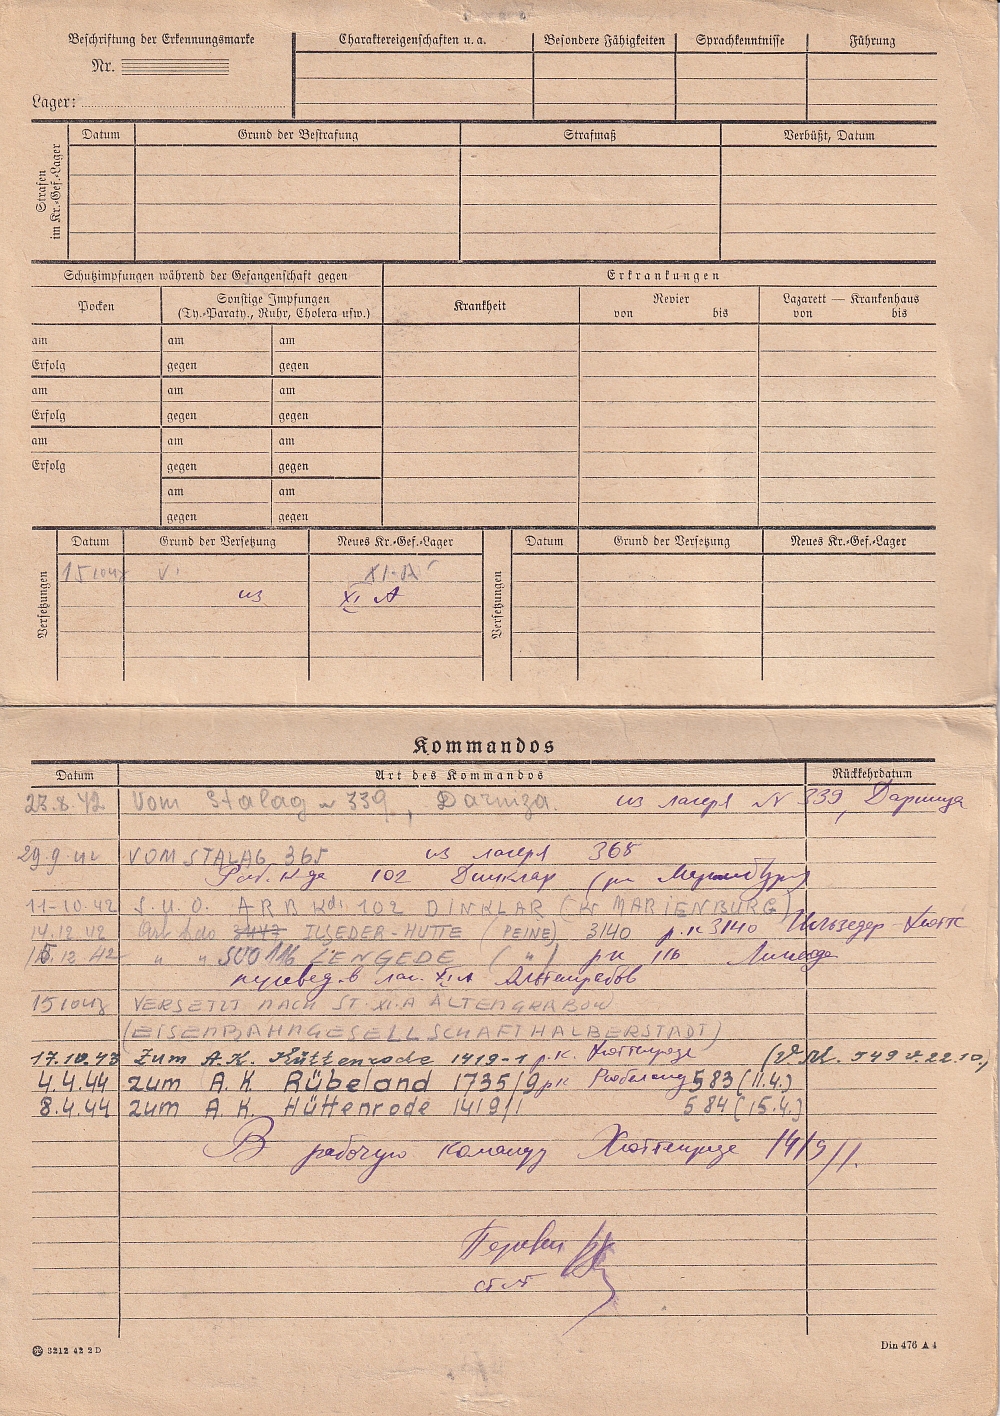 Beschriftung der Erkennungsmarke
Nr.
Lager:
Charaktereigenschaften u. a.
Besondere Fähigkeiten
Sprachkenntnisse
Führung
Strafen im Kr.-Gef.-Lager
Datum
Grund der Bestrafung
Strafmaß
Verbüßt, Datum
Schutzimpfungen während der Gefangenschaft gegen
Erkrankungen
Pocken
Sonstige Impfungen
(Ty.-Paraty., Ruhr, Cholera usw.)
Krankheit
Revier
von bis
Lazarett — Krankenhaus
von bis
am am am
Erfolg gegen gegen
am am am
Erfolg gegen gegen
am am am
Erfolg gegen gegen
am am
gegen gegen
Versetzungen
Datum Grund der Versetzung Neues Kr.-Gef.-Lager
XI-A
из XI A
Versetzungen
Datum Grund der Versetzung Neues Kr.-Gef.-Lager
Kommandos
Datum Art des Kommandos Rückkehrdatum
23.8.42 Vom Stalag 339, Darniza. из лагеря № 339, Дарница
29.9.42 VOM STALAG 365 из лагеря 365
102 Динклар (рн Мариенбург)
11-10.42 S.U.O. ARB Kdo. 102 DINKLAR (Kr MARIENBURG)
14.12.42 Arb Kdo 3447 ILSEDER-HÜTTE (PEINE) 3140 р.к 3140 Ильзедер-Хютте
15.12.42 " " SUO 116 LENGEDE (") рк 116 Ленгеде
перевед. в лаг. XI A Альтенграбов
VERSETZT NACH ST. XI.A ALTENGRABOW
(EISENBAHNGESELLSCHAFT HALBERSTADT)
17.10.43 Zum A.K. Hüttenrode 1419-1 р.к. Хюттенроде (V.M. 549 v. 22.10.)
4.4.44 zum A.K. Rübeland 1735/9 рк Рюбеланд 583 (11.4.)
8.4.44 zum A.K. Hüttenrode 1419/1 584 (15.4.)
В рабочую команду Хюттенроде 1419/1.
3212 42 2 D
Din 476 A 4